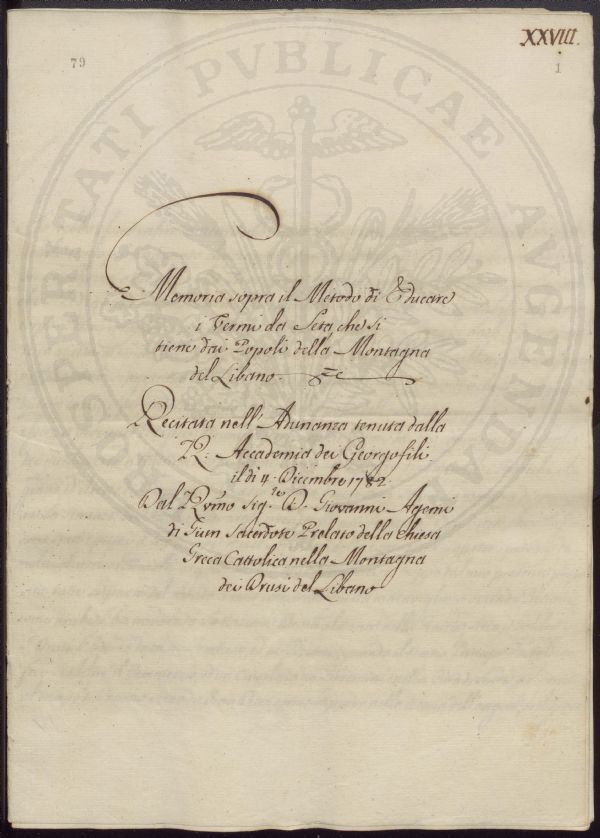 XXVIII.
79
1
PROSPERITATI PVBLICAE AVGENDAE
Memoria sopra il Metodo di Educare
i Vermi da Seta che si
tiene dai Popoli della Montagna
del Libano.
Recitata nell' Adunanza tenuta dalla
R: Accademia dei Georgofili
il dì 4. Dicembre 1782.
Dal Rvmo Sigre D. Giovanni Agemi
di Giun Sacerdote Prelato della Chiesa
Greca Cattolica nella Montagna
dei Drusi del Libano